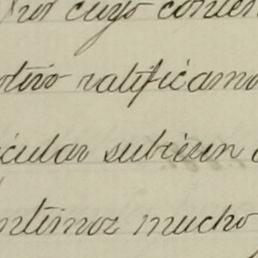 Por cuyo conten
otivo ratificamo
icular subiesen
ntimos mucho